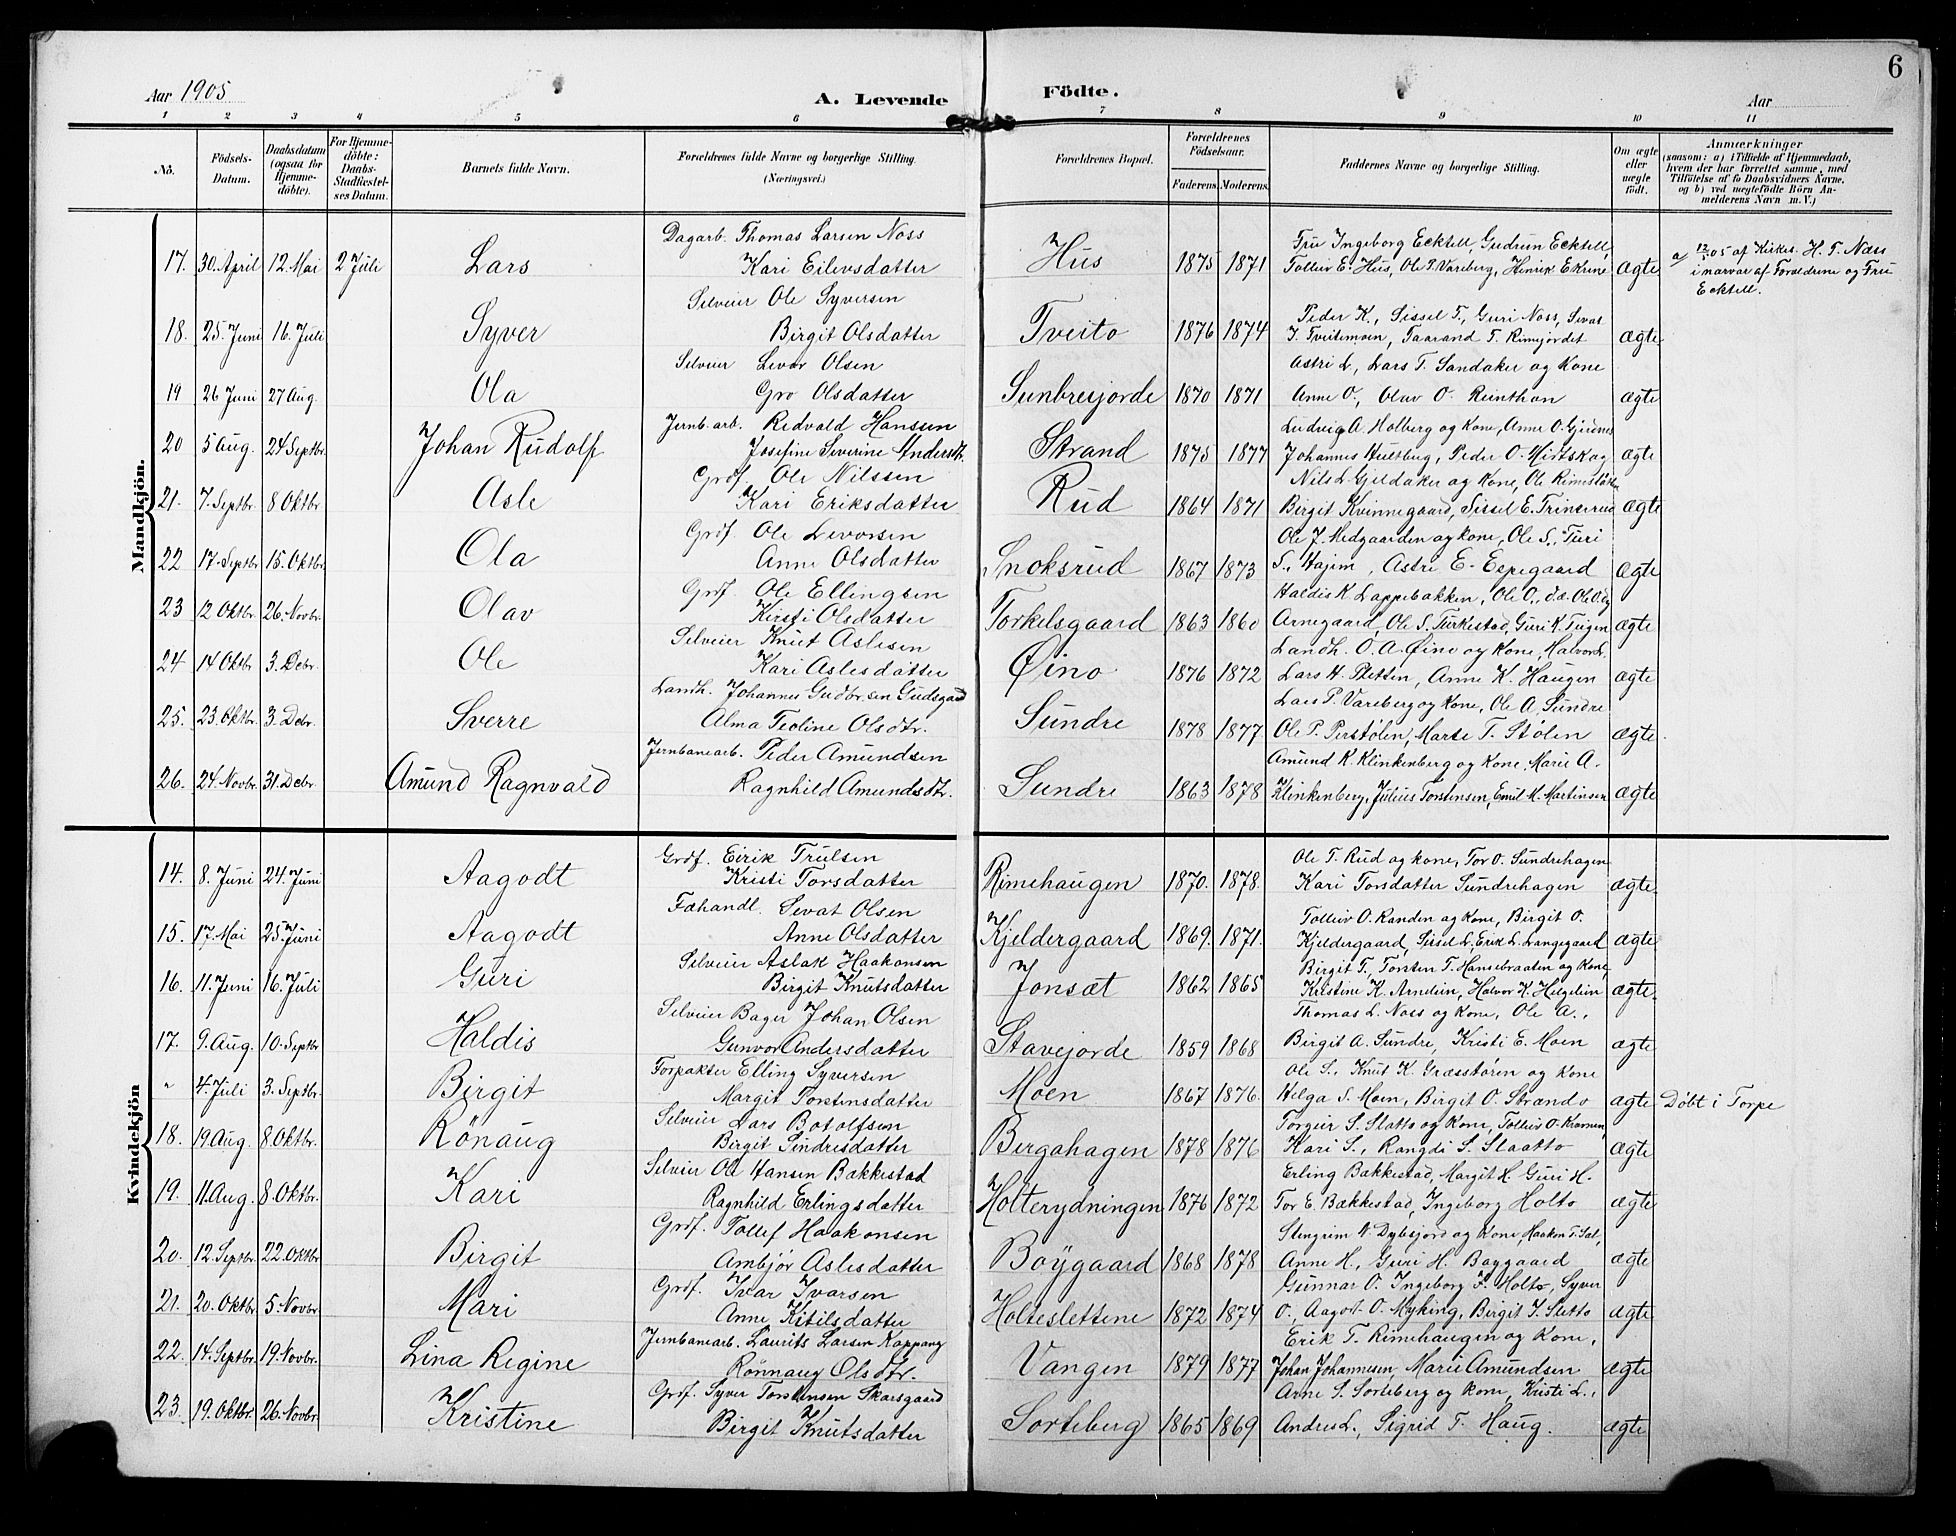 Aar 1905
A. Levende Födte.
Aar
6
1 2 3 4 5 6 7 8 9 10 11
No.
Födsels-Datum.
Daabsdatum (ogsaa for Hjemmedöbte).
For Hjemmedöbte: Daabs-Stadfæstelses Datum.
Barnets fulde Navn.
Forældrenes fulde Navne og borgerlige Stilling. (Næringsvei.)
Forældrenes Bopæl.
Forældrenes Födselsaar.
Faderens. Moderens.
Faddernes Navne og borgerlige Stilling.
Om ægte eller uægte födt.
Anmærkninger
(saasom: a) i Tilfælde af Hjemmedaab, hvem der har forrettet samme, med Tilföielse af to Daabsvidners Navne. og b) ved uægtefödte Börn Anmelderens Navn m. V.)
Mandkjön.
Dagarb. Thomas Larsen Noss Fru Ingeborg Ecktell, Gudrun Ecktell,
17. 30. April 12. Mai 2 Juli Lars Kari Eilevsdatter Hus 1875 1871 Tolleiv E. Hus, Ole P. Vareberg, Henrik Ekrine ægte a/ 12/5 05 af Kirkes. H. T. Næss
i nærvær af Forældrene og Fru
Ecktell.
Selveier Ole Syversen Peder K., Sissel T., Guri Noss, Sevat
18. 25. Juni 16. Juli Syver Birgit Olsdatter Tveito 1876 1874 T. Tveitemoen, Taarand T. Rimejordet ægte
Selveier Levor Olsen Astri L, Lars T. Sandaker og Kone
19 26 Juni 27 Aug. Ola Gro Olsdatter Sunbresjorde 1870 1871 Anne O., Olav O. Reinthon ægte
Jernb.arb. Redvald Hansen Ludvig A. Holberg og Kone, Anne O.
20 5 Aug. 24 Septbr. Johan Rudolf Josefine Severine Andersdtr. Strand 1875 1877 Johannes Hultberg, Peder O. ægte
Grdf. Ole Nilssen Nils L. Gjeldaker og Kone, Ole
21. 7. Septbr. 8 Oktbr. Asle Kari Eriksdatter Rud 1864 1871 Birgit Kvinnegaard, Sissel E. Trinserud ægte
Grdf. Ole Levorsen Ole J. Medgaarden og Kone, Ole S., Turi
22 17. Septbr. 15. Oktbr. Ola Anne Olsdatter Snoksrud 1867 1873 S. Hajem, Astri E. Espegaard ægte
Grdf. Ole Ellingsen Haldis K. Lappebakken, Ole O.,
23 12 Oktbr. 26. Novbr. Olav Kirsti Olsdatter Torkelsgaard 1863 1860 Arnegaard, Ole S. Turkestad, Guri K. Tufgen ægte
Selveier Knut Aslesen Landh. O. A. Øino og Kone, Halvor L.
24 14 Oktbr. 3. Debr. Ole Kari Aslesdatter Øino 1876 1872 Lars H. Pletten, Anne K. Haugen ægte
Landh. Johannes Gudbr.sen Gudsgard Lars P. Vareberg og Kone, Ole A. Sundre
25. 23. Oktbr. 3. Debr. Sverre Alma Teoline Olsdtr. Sundre 1878 1877 Ole P. Perstølen, Marte T. Stølen ægte
Jernbanearb. Peder Amundsen Amund K. Klinkenberg og Kone, Marie A.
26. 24. Novbr. 31. Debr. Amund Ragnvald Ragnhild Amundsdtr. Sundre 1863 1878 Klinkenberg, Julius Torstensen, Emil M. Martinsen ægte
Kvindekjön
Grdf. Eirik Trulsen Ole T. Rud og Kone, Tor O. Sundrehagen
14. 8. Juni 24. Juni Aagodt Kristi Torsdatter Rimehaugen 1870. 1878. Kari Torsdatter Sundrehagen ægte.
Fæhandl. Sevat Olsen Tolleiv O. Randen og Kone, Birgit O.
15. 17. Mai 25. Juni Aagodt Anne Olsdatter Kjeldergaard 1869. 1871. Kjeldergaard, Sissel L., Erik L. Langegaard ægte
Selveier Aslak Haakonsen Birgit T., Torsten T. Hansebraaten og Kone,
16. 11. Juni 16. Juli Guri Birgit Knutsdatter Jonsæt 1862 1865 Kristine K. Arnelien, Halvor K. Helgelien ægte.
Selveier Bager Johan Olsen Thomas L. Noss og Kone, Ole A.,
17. 9. Aug. 10. Septbr Haldis Gunvor Andersdatter Stavejorde 1859 1868 Birgit A. Sundre, Kristi E. Moen ægte
Forpakter Elling Syversen Ole S., Knut K. Græsstøren og Kone
" 4. Juli 3. Septbr. Birgit Margit Torstensdatter Moen 1867 1876. Helga S. Moen, Birgit O. Strando ægte Døbt i Torpe
Selveier Lars Botolfsen Torgeir S. Slatto og Kone, Tolleiv O. Kramen,
18. 19. Aug. 8 Oktbr. Rönaug Birgit Sindresdatter Bergahagen 1878 1876 Kari S., Rangdi S. Slaatto ægte
Selveier Ole Hansen Bakkestad Erling Bakkestad, Margit H. Guri H.
19. 11. Aug. 8. Oktbr. Kari Ragnhild Erlingsdatter Holterydningen 1876 1872 Tor E. Bakkestad, Ingeborg Holto ægte
Grdf. Tollef Haakonsen Stengrim N. Dybsjord og Kone, Haakon T. Sal,
20. 12. Septbr 22. Oktbr Birgit Ambjør Aslesdatter Böygaard 1868 1878 Anne H., Guri H. Bøygaard ægte
Grdf. Ivar Ivarsen Gunnar O. Ingeborg F. Holto, Syver
21. 20. Oktbr. 5. Novbr. Mari Anne Kitilsdatter Holteslettene 1872 1874 O., Aagot O. Myking, Birgit I. Sletto ægte
Jernbanearb. Laurits Larsen Kappang Erik T. Rimehaugen og Kone,
22. 14. Septbr. 19. Novbr. Lina Regine Rönnaug Olsdtr. Vangen 1879 1877 Johan Johannesen, Marie Amundsen ægte
Grdf. Syver Torstensen Skarsgaard Arne S. Sorteberg og Kone, Kristi L.,
23. 19. Oktbr. 26. Novbr. Kristine Birgit Knutsdatter Sorteberg 1865 1869 Andres L., Sigrid T. Haug. ægte